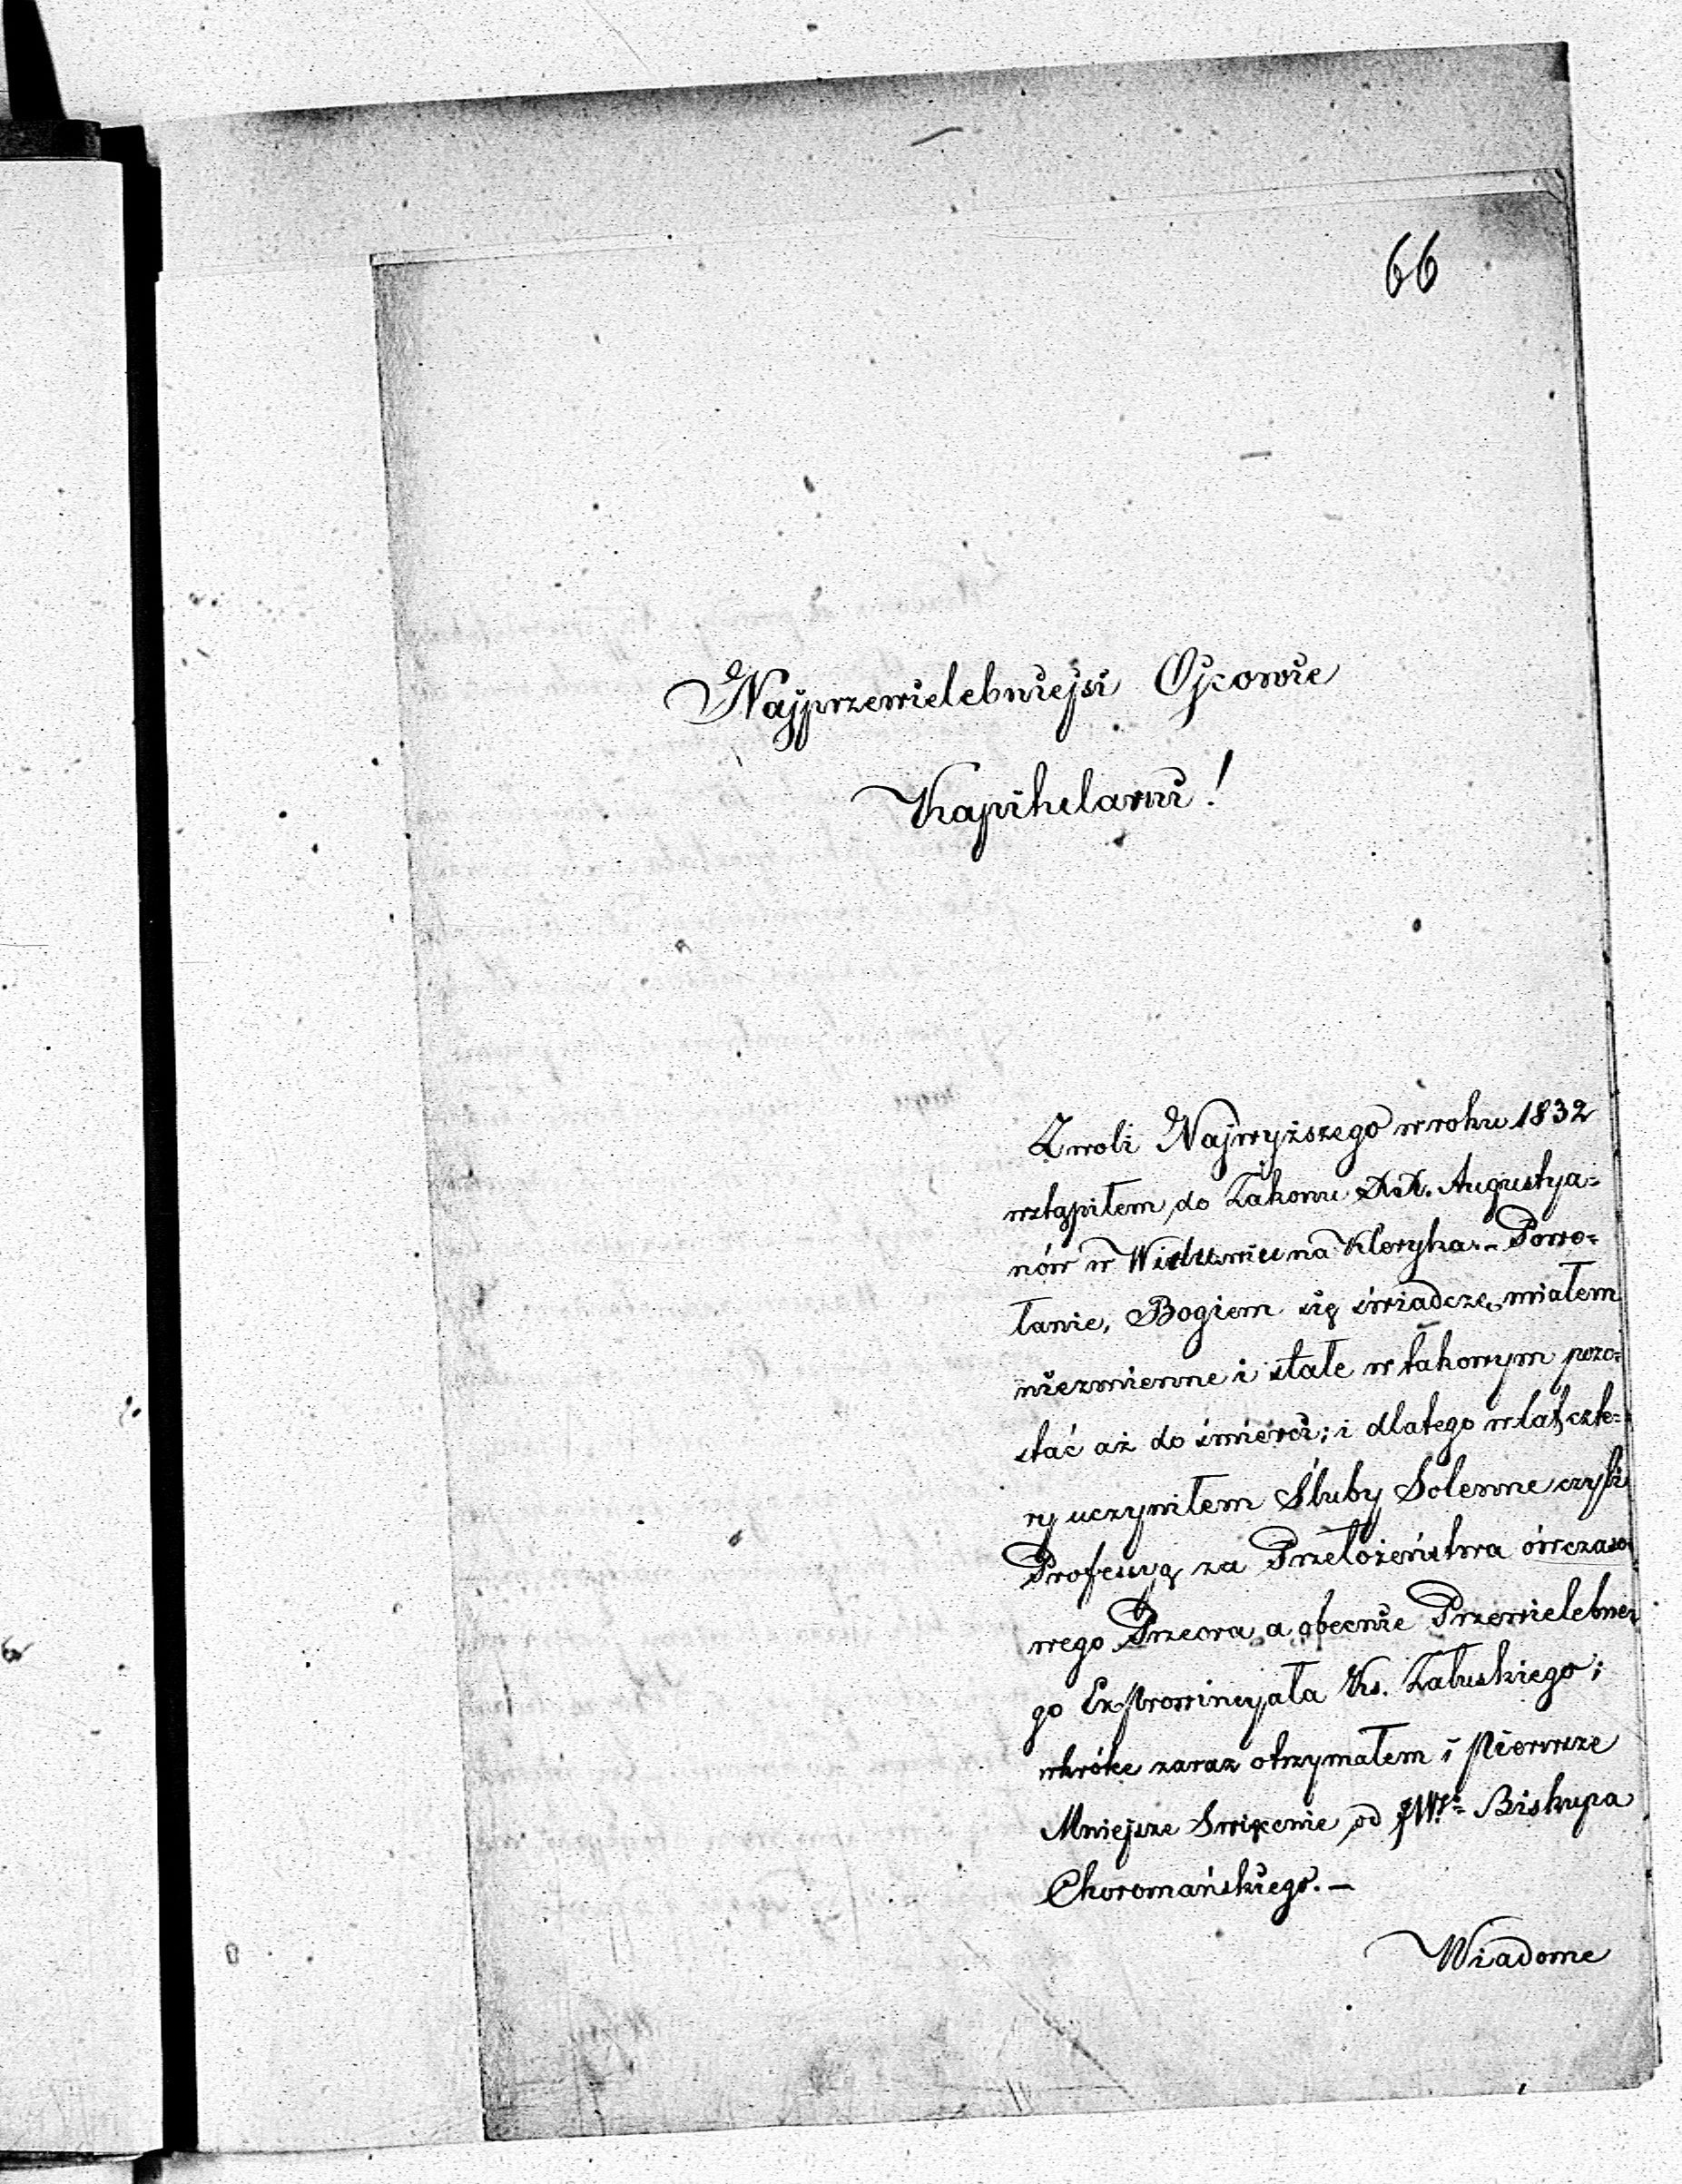 66
Najprzewielebniejsi Ojcowie
Kapitularni!
Z woli Najwyższego w roku 1832
wstąpiłem do Zakonu XX. Augustya-
nów w Wieluniu na Kleryka. – Powo-
łanie, Bogiem się świadczę, miałem
niezmienne i stałe w takowym pozo-
stać aż do śmierci; i dlatego w lat czte-
ry uczyniłem Śluby Solenne czyli
Professyą za Przełożeństwa ówczaso-
wego Przeora a obecnie Przewielebne-
go Exprowincyała Ks. Załuskiego;
wkrótce zaraz otrzymałem i pierwsze
Mniejsze Święcenie od JW. Biskupa
Choromańskiego. –
Wiadome